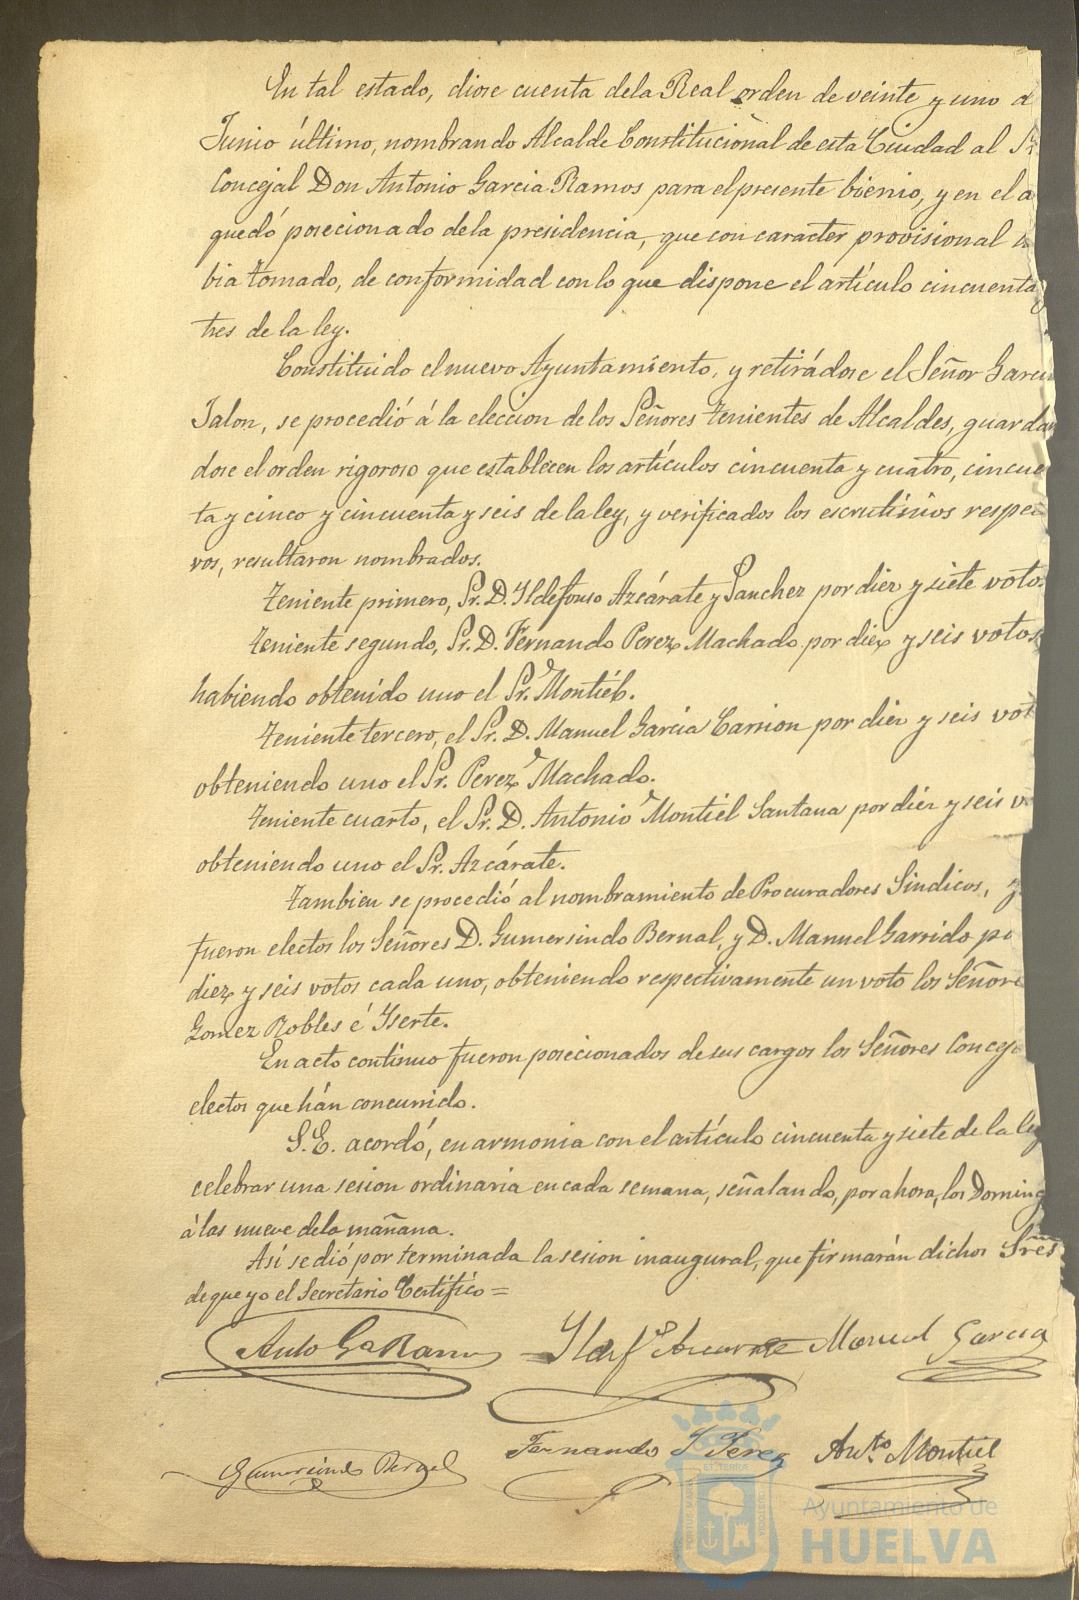 En tal estado, diose cuenta dela Real orden de veinte y uno d
Junio último, nombrando Alcalde Constitucional de esta Ciudad al Sr.
Concejal Don Antonio Garcia Ramos para el presente bienio, y en el a
quedó posecionado dela presidencia, que con caracter provisional
bia tomado, de conformidad con lo que dispone el artículo cincuenta y
tres de la ley.
Constituido el nuevo Ayuntamiento, y retirádose el Señor Garcia
Jalon, se procedió á la eleccion de los Señores Tenientes de Alcaldes, guardan
dose el orden rigoroso que establecen los artículos cincuenta y cuatro, cincue
ta y cinco y cincuenta y seis de la ley, y verificados los escrutinios respec
vos, resultaron nombrados.
Teniente primero, Sr. D. Yldefonso Azcárate y Sanchez por diez y siete votos.
Teniente segundo, Sr. D. Fernando Perez Machado por diez y seis votos
habiendo obtenido uno el Sr. Montiél.
Teniente tercero, el Sr. D. Manuel Garcia Carrion por diez y seis vot
obteniendo uno el Sr. Perez Machado.
Teniente cuarto, el Sr. D. Antonio Montiel Santana por diez y seis v
obteniendo uno el Sr. Azcárate.
Tambien se procedió al nombramiento de Procuradores Sindicos, y
fueron electos los Señores D. Gumersindo Bernal, y D. Manuel Garrido po
diez y seis votos cada uno, obteniendo respectivamente un voto los Señore
Gomez Robles é Yserte.
En acto continuo fueron posecionados de sus cargos los Señores Conceja
electos que hán concurrido.
S. E. acordó, en armonia con el artículo cincuenta y siete de la ley
celebrar una sesion ordinaria en cada semana, señalando, por ahora, los Doming
á las nueve dela mañana.
Así se dió por terminada la sesion inaugural, que firmarán dichos Sres
de que yo el Secretario Certifico =
Anto Ga Ramos Yldefso Azcarate Manuel Garcia
Gumersindo Bernal Fernando Perez Anto. Montiel
PORTUS MARIS
ET TERRAE
CUSTODIA
Ayuntamiento de
HUELVA